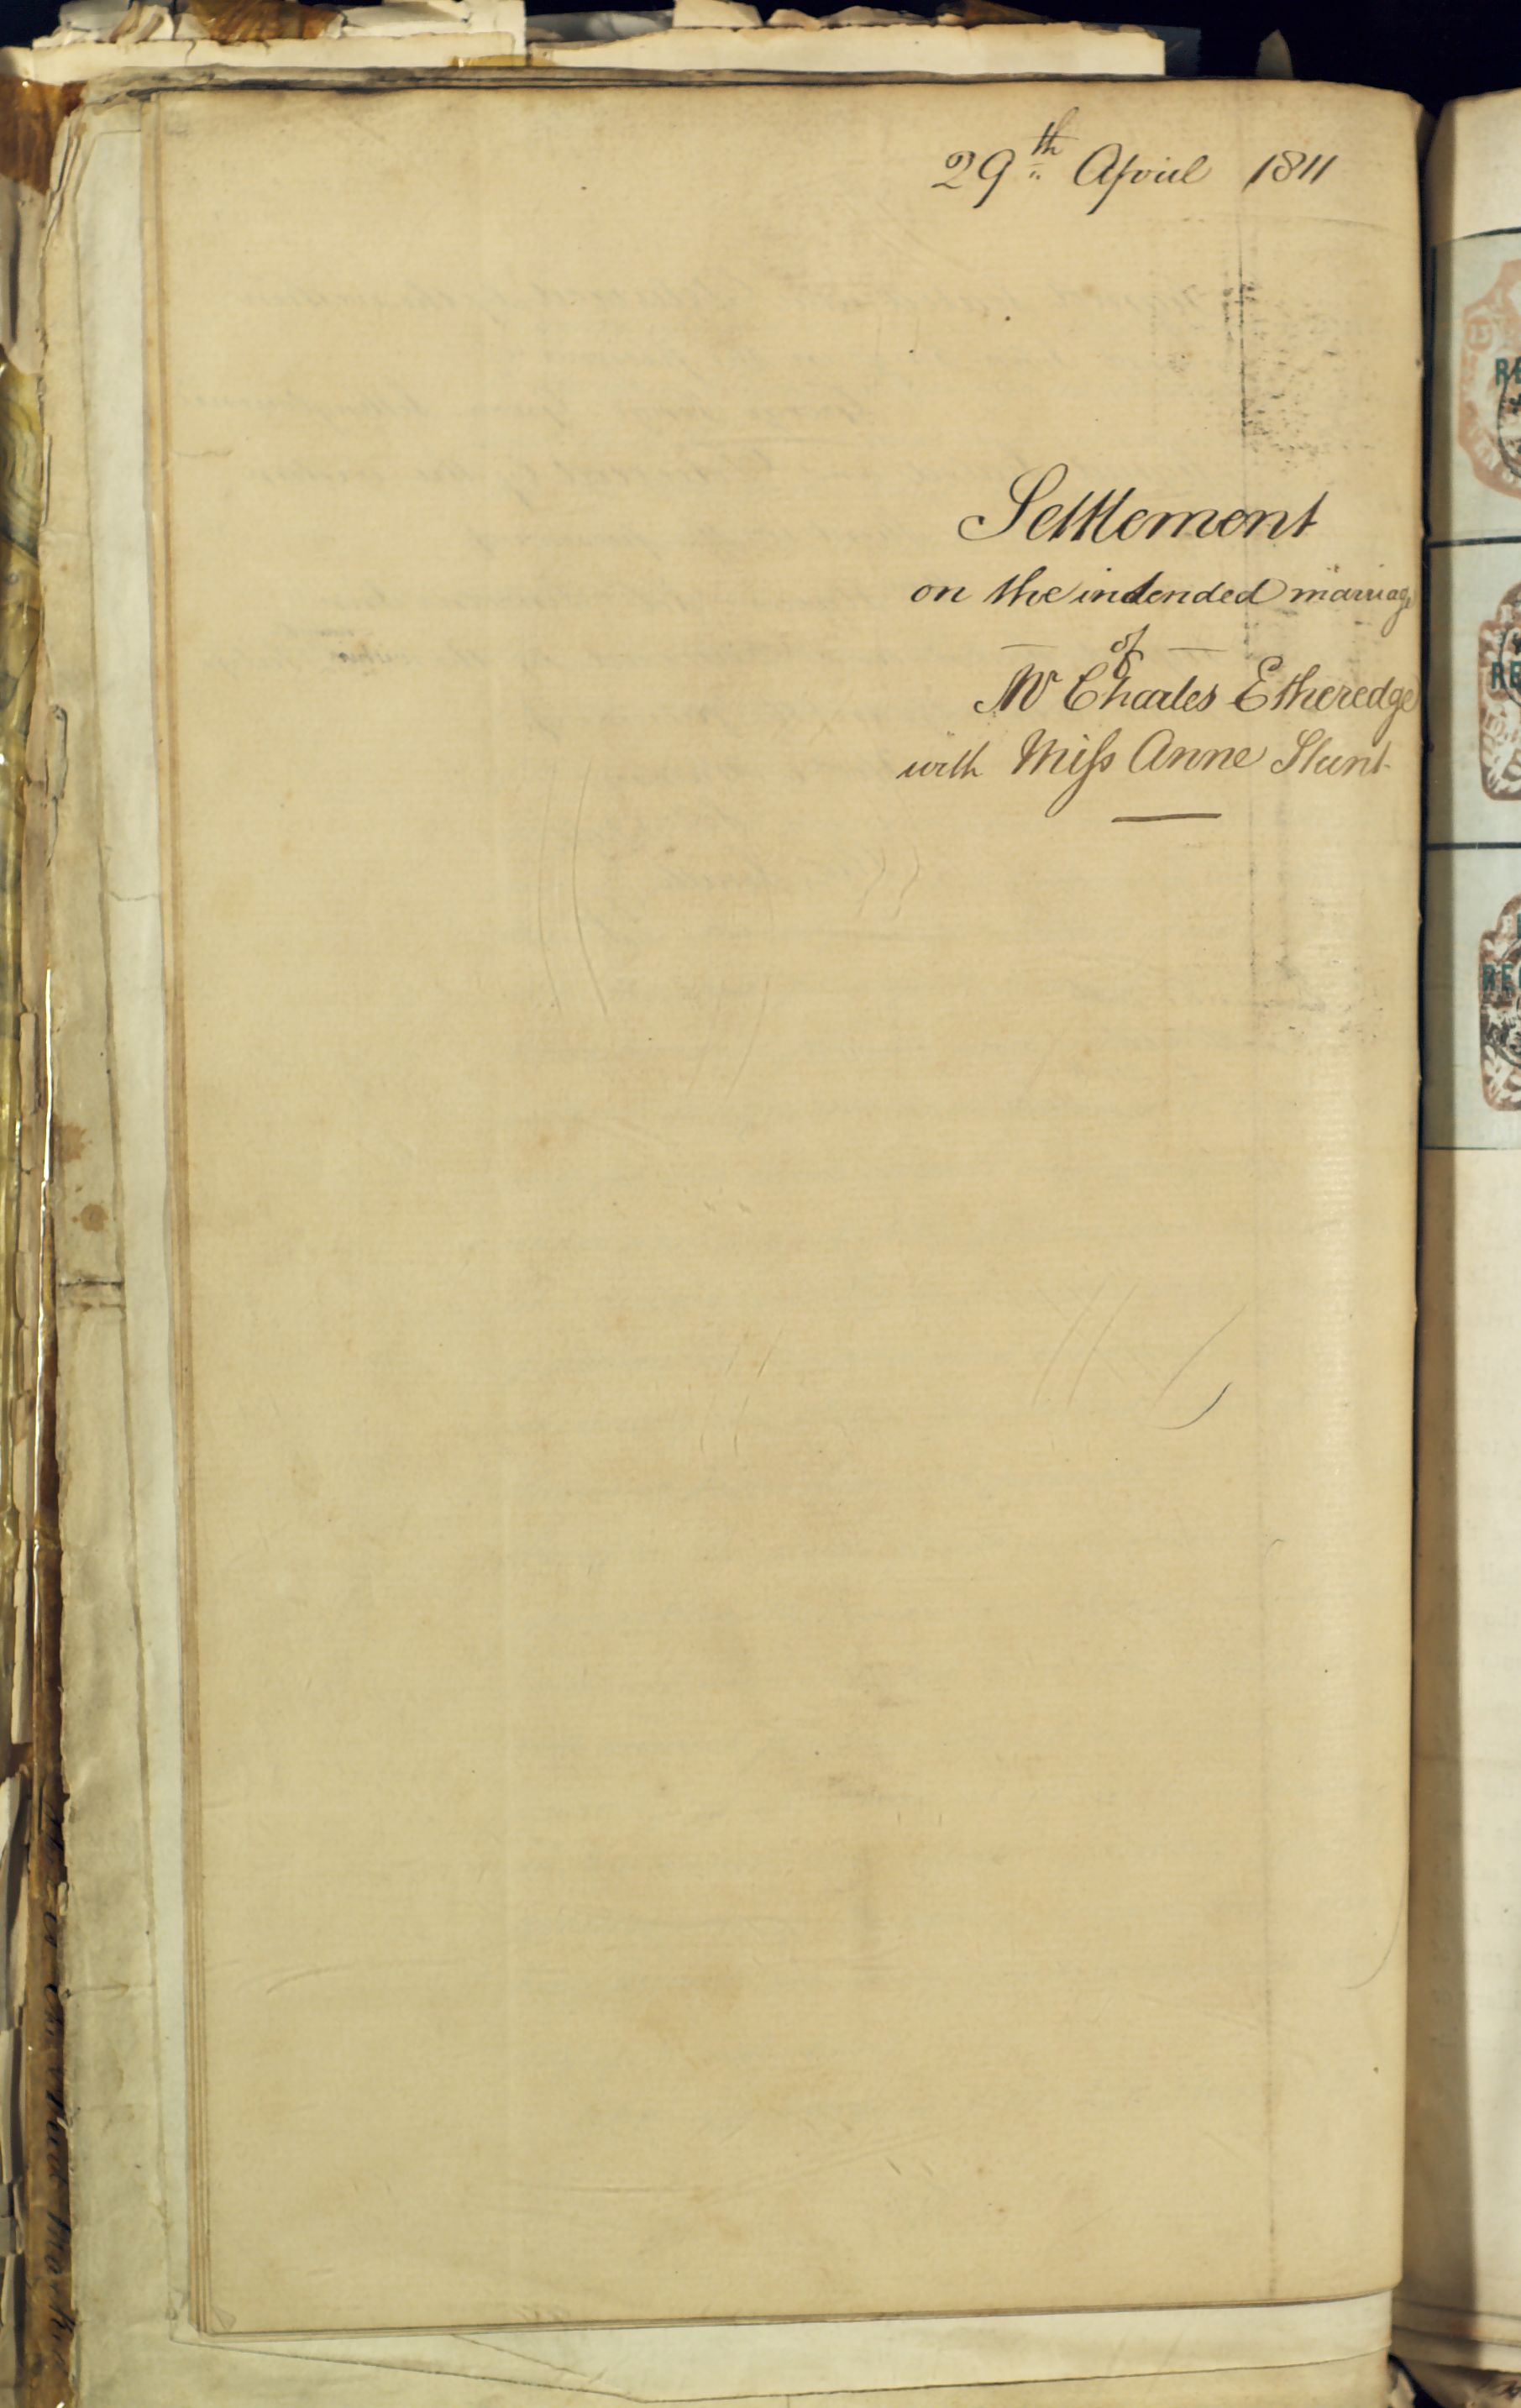 29th April 1811
Settlement
on the intended marriage
of
Mr Charles Etheredge
with Miss Anne Stunt